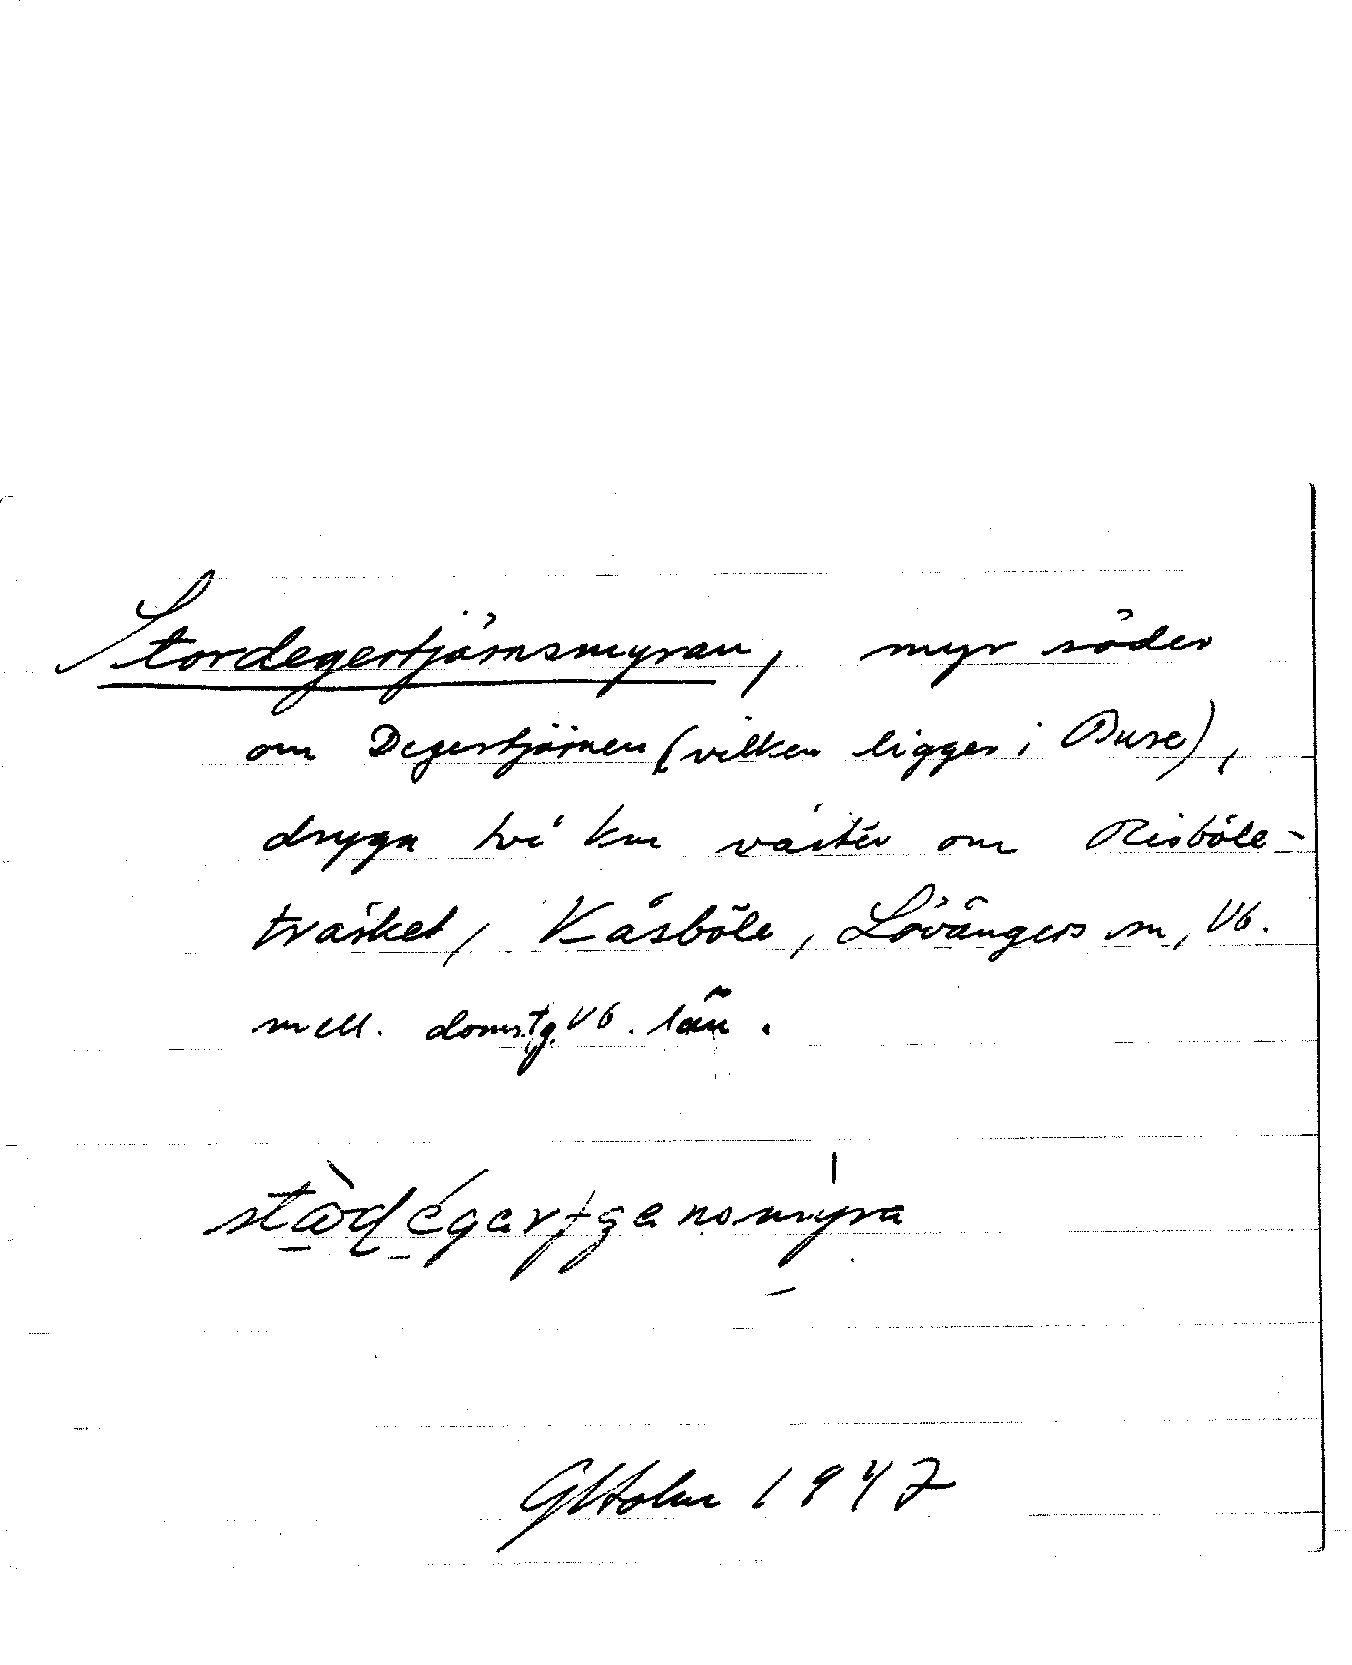 Stordegertjärnsmyran, myr söder
om Degertjärnen (vilken ligger i Bure),
dryga två km väster om Risböle-
träsket, Kåsböle, Lövångers sn, Vb.
mell. doms.tg. Vb. län.
G Holm 1947